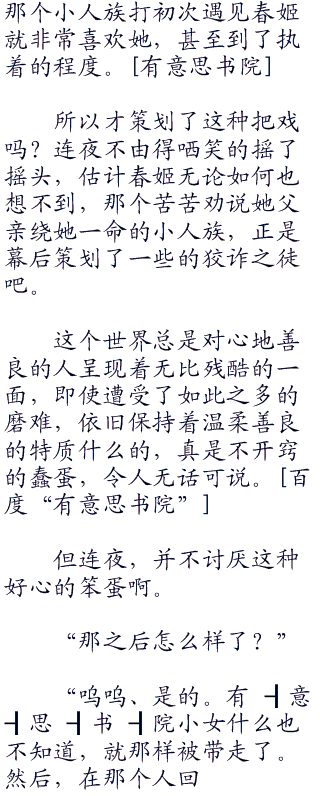 那个小人族打初次遇见春姬
就非常喜欢她，甚至到了执
着的程度。[有意思书院]
所以才策划了这种把戏
吗？连夜不由得哂笑的摇了
摇头，估计春姬无论如何也
想不到，那个苦苦劝说她父
亲绕她一命的小人族，正是
幕后策划了一些的狡诈之徒
吧。
这个世界总是对心地善
良的人呈现着无比残酷的一
面，即使遭受了如此之多的
磨难，依旧保持着温柔善良
的特质什么的，真是不开窍
的蠢蛋，令人无话可说。[百
度“有意思书院”]
但连夜，并不讨厌这种
好心的笨蛋啊。
“那之后怎么样了？”
“呜呜、是的。有 ┫意
┫思 ┫书 ┫院小女什么也
不知道，就那样被带走了。
然后，在那个人回